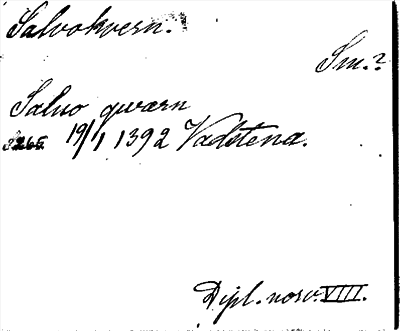 Salvokvern.
Sm.?
Saluo qwærn
19/1 1392 Vadstena.
Dipl. norv. VIII.